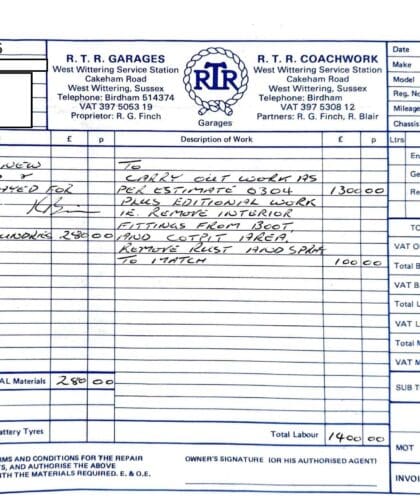 R. T. R. GARAGES
West Wittering Service Station
Cakeham Road
West Wittering, Sussex
Telephone: Birdham 514374
VAT 397 5053 19
Proprietor: R. G. Finch
RTR
Garages
R. T. R. COACHWORK
West Wittering Service Station
Cakeham Road
West Wittering, Sussex
Telephone: Birdham
VAT 397 5308 12
Partners: R. G. Finch, R. Blair
Date
Make
Model
Reg. No
Mileage
Chassis
£ p Description of Work £ p Ltrs
NEW TO
CARRY OUT WORK AS
FOR PER ESTIMATE 0304 1300 00
PLUS EDITIONAL WORK
IE. REMOVE INTERIOR
FITTINGS FROM BOOT,
280 00 AND COTPIT AREA.
REMOVE RUST AND SPRAY
TO MATCH 100 00
En
Ge
Re
TO
VAT O
Total B
VAT B
Total L
VAT L
Total M
VAT M
SUB T
MOT
INVOI
AL Materials 280 00
attery Tyres
Total Labour 1400 00
RMS AND CONDITIONS FOR THE REPAIR
S, AND AUTHORISE THE ABOVE
WITH THE MATERIALS REQUIRED. E. & O.E.
OWNER'S SIGNATURE (OR HIS AUTHORISED AGENT)